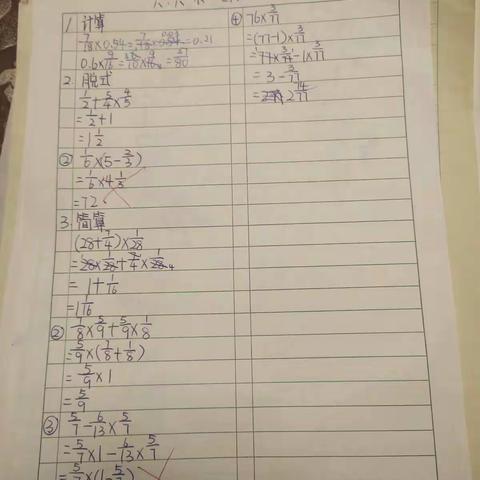 1. 计算
7/18×0.54=7/18×0.54=0.21
0.6×9/16=6/10×9/16=27/80
2. 脱式
1/2+5/4×4/5
=1/2+1
=1 1/2
② 1/6×(5-2/3)
=1/6×4 1/3
=72
3. 简算
(28+7/4)×1/28
=28×1/28+7/4×1/28
=1+1/16
=1 1/16
② 7/8×5/9+5/9×1/8
=5/9×(7/8+1/8)
=5/9×1
=5/9
③ 5/7-6/13×5/7
=5/7×1-6/13×5/7
④ 76×3/77
=(77-1)×3/77
=77×3/77-1×3/77
=3-3/77